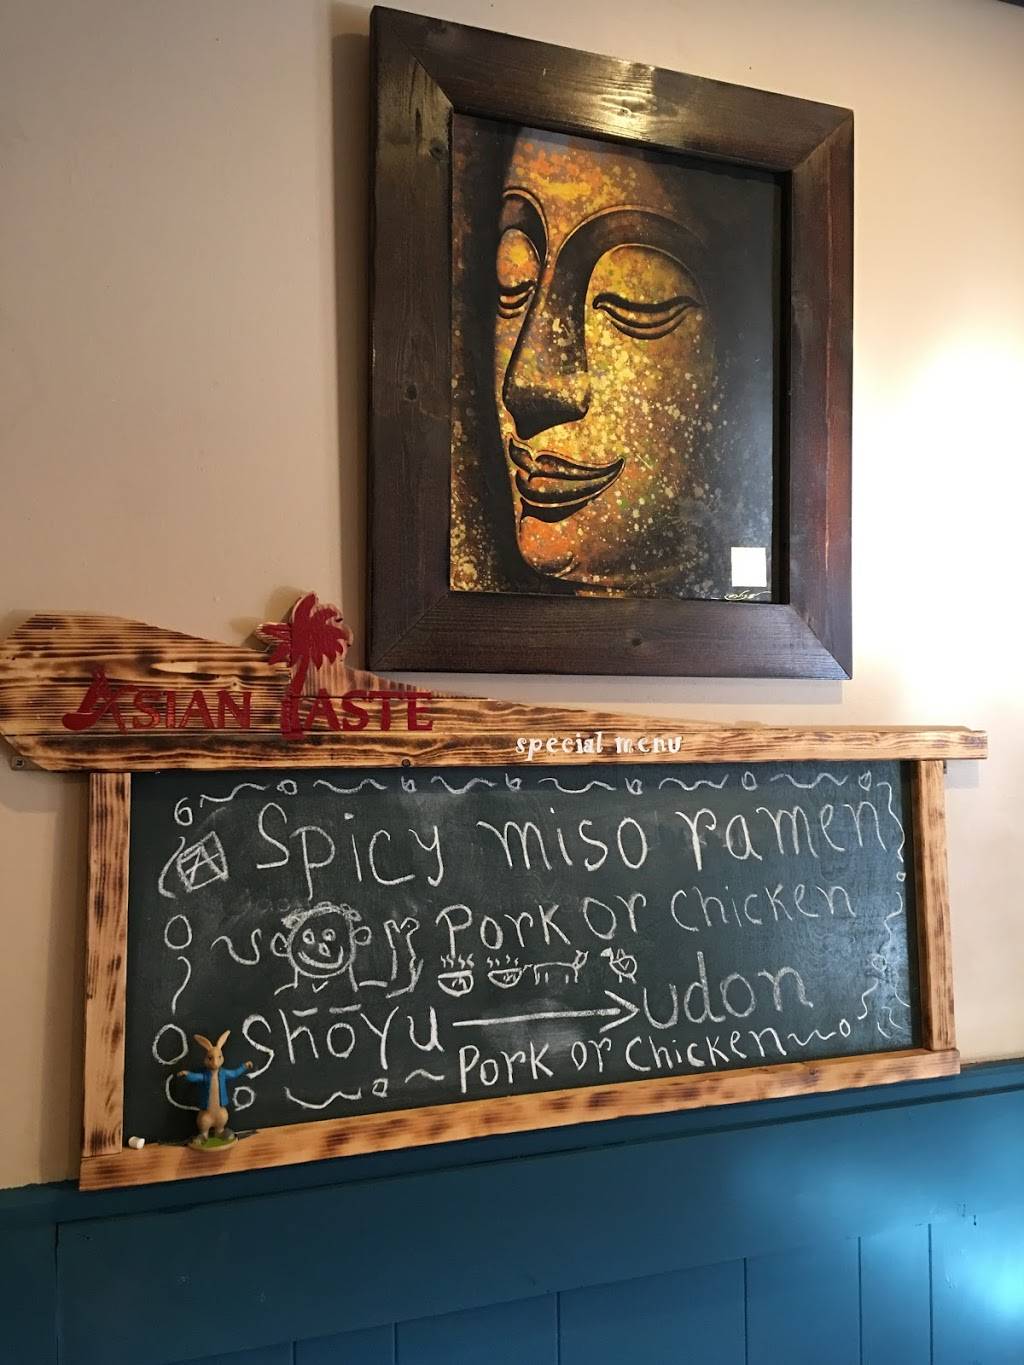 ASIAN TASTE
special menu
Spicy miso ramen
Pork or chicken
Shōyu → udon
Pork or Chicken